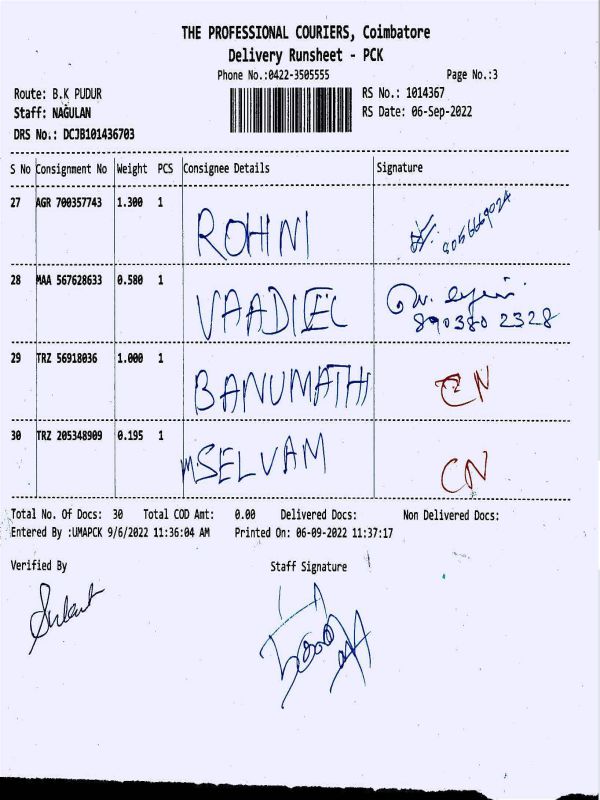 THE PROFESSIONAL COURIERS, Coimbatore
Delivery Runsheet - PCK
Phone No.:0422-3505555 Page No.:3
Route: B.K PUDUR RS No.: 1014367
Staff: NAGULAN RS Date: 06-Sep-2022
DRS No.: DCJB101436703
S No Consignment No Weight PCS Consignee Details Signature
27 AGR 700357743 1.300 1 ROHINI
28 MAA 567628633 0.580 1 VAADIEL
8903802328
29 TRZ 56918036 1.000 1 BANUMATHI CN
30 TRZ 205348909 0.195 1 M SELVAM CN
Total No. Of Docs: 30 Total COD Amt: 0.00 Delivered Docs: Non Delivered Docs:
Entered By :UMAPCK 9/6/2022 11:36:04 AM Printed On: 06-09-2022 11:37:17
Verified By Staff Signature